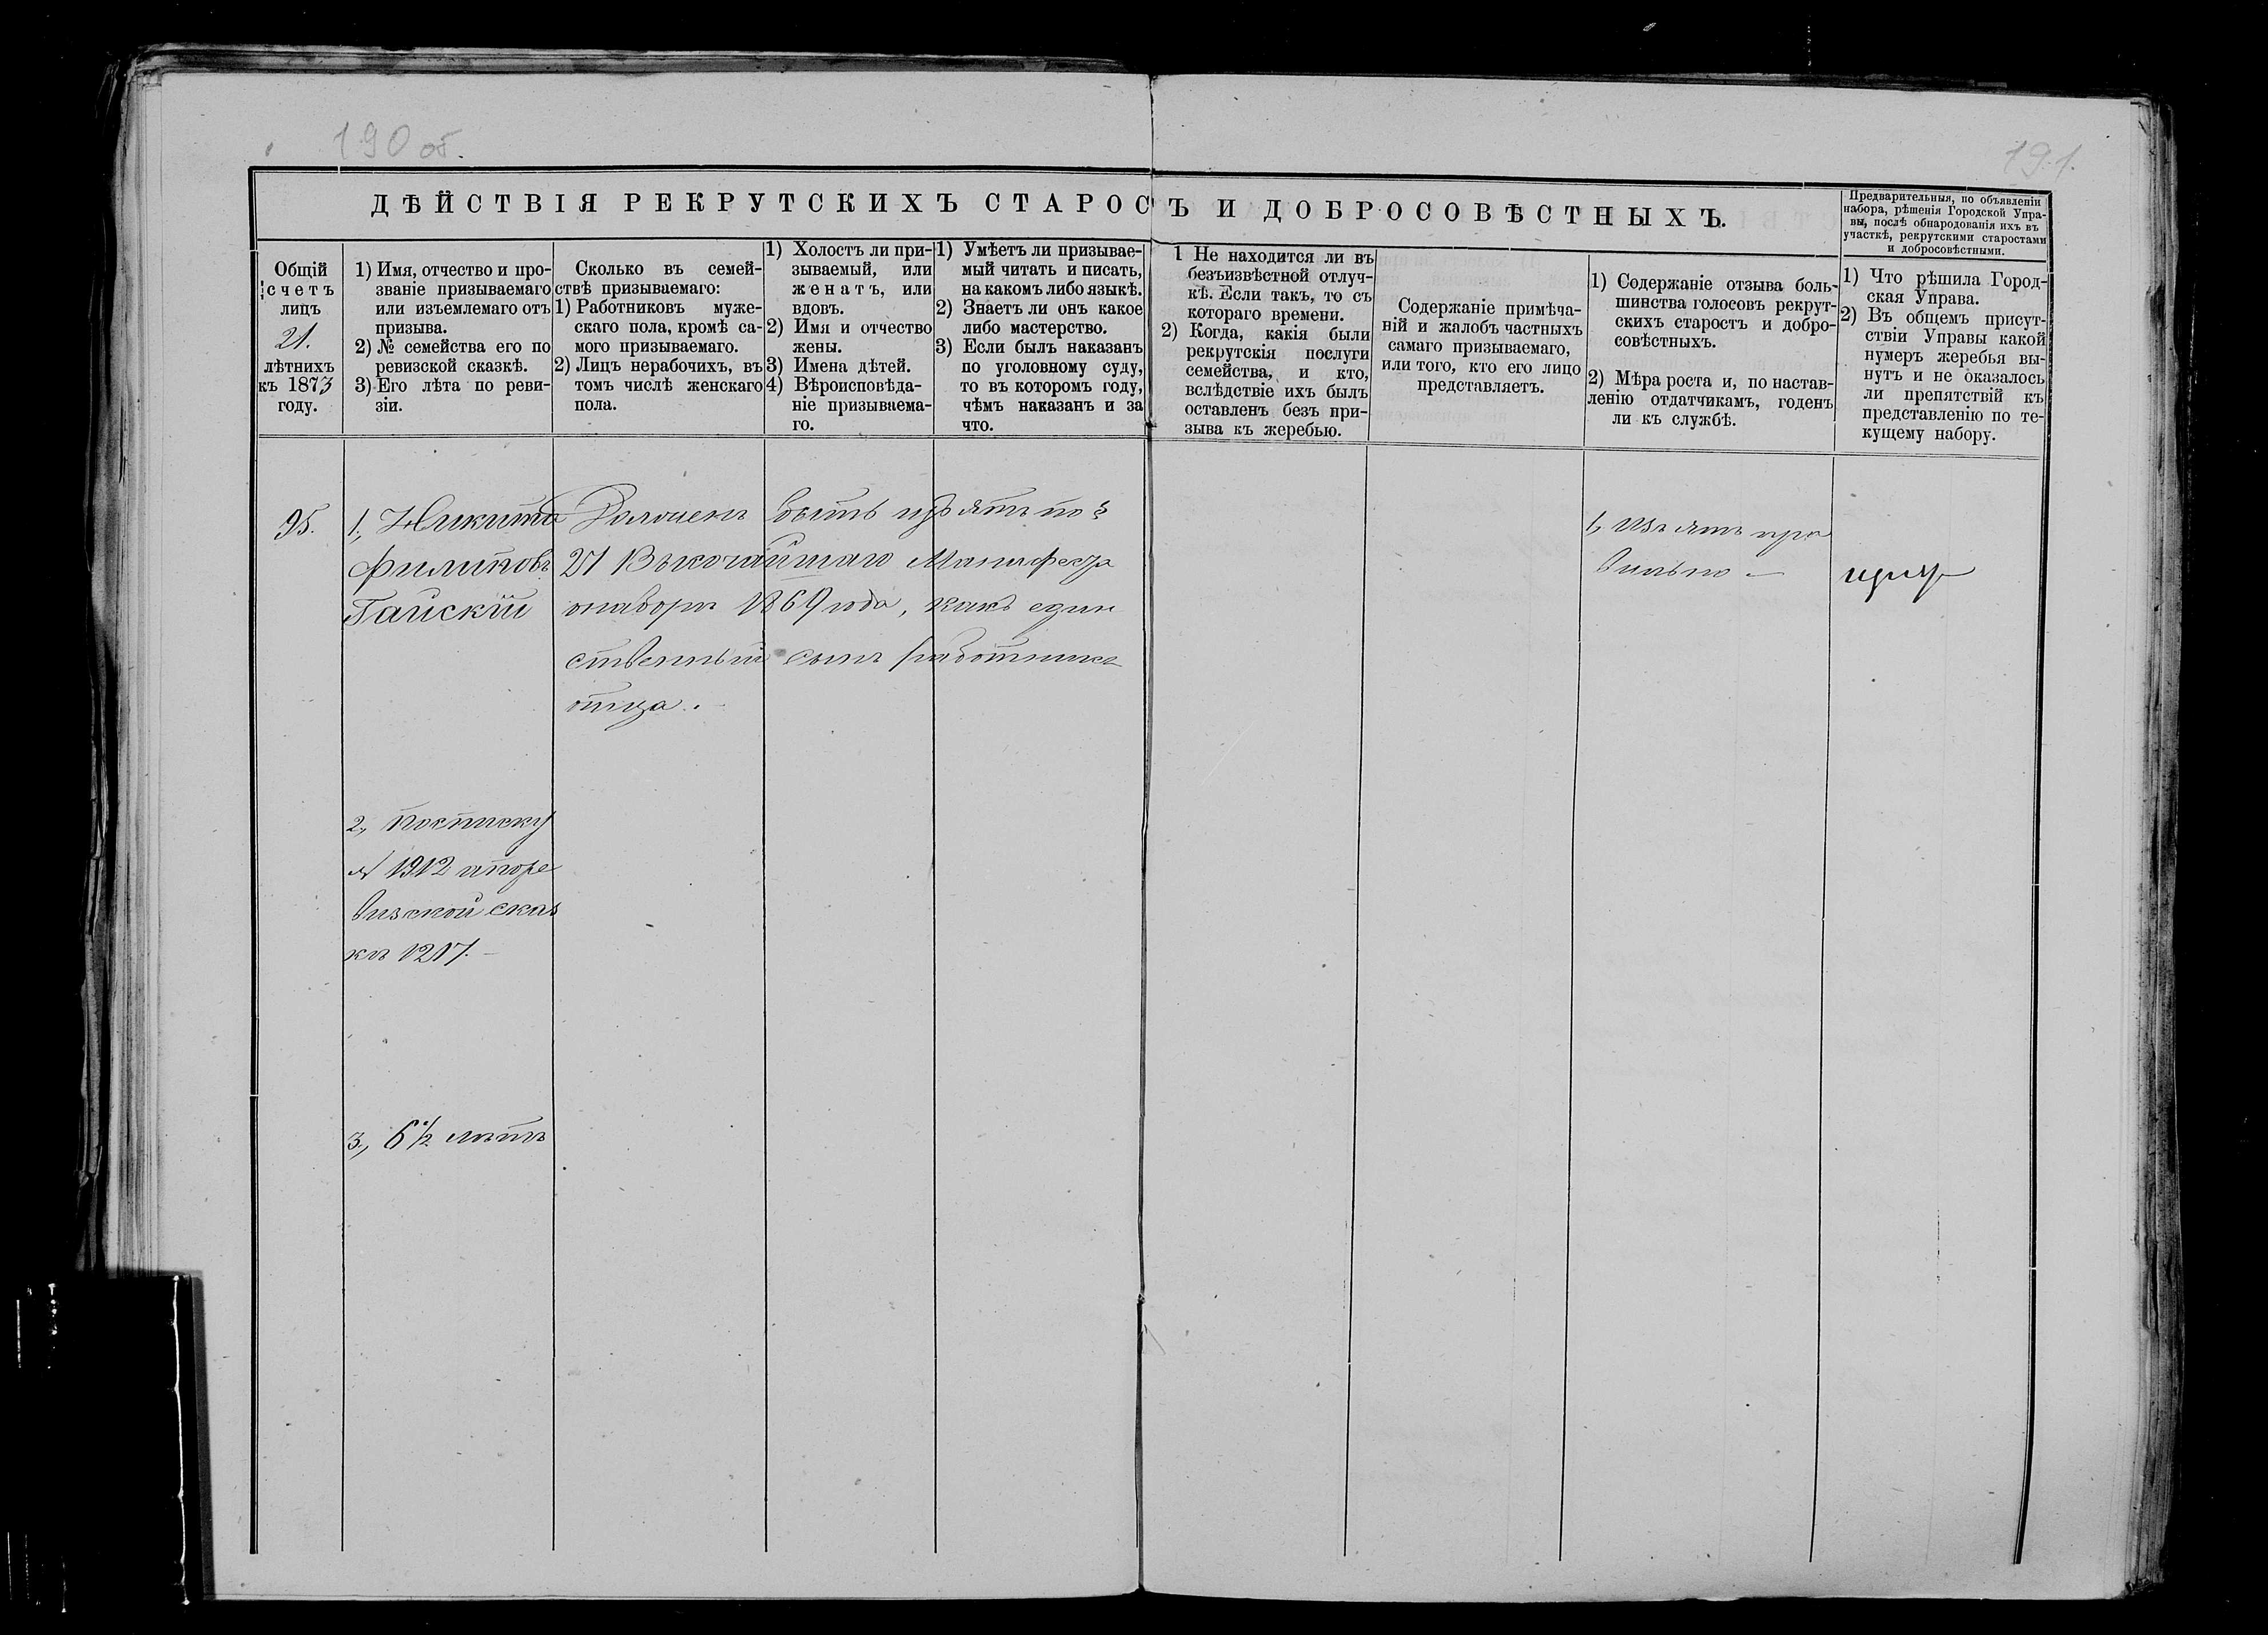 190 об.
191.
ДѢЙСТВІЯ РЕКРУТСКИХЪ СТАРОСТЪ И ДОБРОСОВѢСТНЫХЪ.
Предварительныя, по объявленіи
набора, рѣшенія Городской Упра-
вы, послѣ обнародованія ихъ въ
участкѣ, рекрутскими старостами
и добросовѣстными.
Общій
счетъ
лицъ
21.
лѣтнихъ
къ 1873
году.
1) Имя, отчество и про-
званіе призываемаго
или изъемлемаго отъ
призыва.
2) № семейства его по
ревизской сказкѣ.
3) Его лѣта по реви-
зіи.
Сколько въ семей-
ствѣ призываемаго:
1) Работниковъ муже-
скаго пола, кромѣ са-
мого призываемаго.
2) Лицъ нерабочихъ, въ
томъ числѣ женскаго
пола.
1) Холостъ ли при-
зываемый, или
женатъ, или
вдовъ.
2) Имя и отчество
жены.
3) Имена дѣтей.
4) Вѣроисповѣда-
ніе призываема-
го.
1) Умѣетъ ли призывае-
мый читать и писать,
на какомъ либо языкѣ.
2) Знаетъ ли онъ какое
либо мастерство.
3) Если былъ наказанъ
по уголовному суду,
то въ которомъ году,
чѣмъ наказанъ и за
что.
1 Не находится ли въ
безъизвѣстной отлуч-
кѣ. Если такъ, то съ
котораго времени.
2) Когда, какія были
рекрутскія послуги
семейства, и кто,
вслѣдствіе ихъ былъ
оставленъ безъ при-
зыва къ жеребью.
Содержаніе примѣча-
ній и жалобъ частныхъ
самаго призываемаго,
или того, кто его лицо
представляетъ.
1) Содержаніе отзыва боль-
шинства голосовъ рекрут-
скихъ старостъ и добро-
совѣстныхъ.
2) Мѣра роста и, по настав-
ленію отдатчикамъ, годенъ
ли къ службѣ.
1) Что рѣшила Город-
ская Управа.
2) Въ общемъ присут-
ствіи Управы какой
нумеръ жеребья вы-
нутъ и не оказалось
ли препятствій къ
представленію по те-
кущему набору.
95.
1, Никита
Филиповъ
Гайскій
Долженъ быть изъятъ по §
21 Высочайшаго Манифеста
о наборѣ 1869 года, какъ един
ственный сынъ работника
отца.
1, Изъятъ пра
вильно
2, по списку
№ 1912 а по ре
визской сказ
кѣ 1217.
3, 6 1/2 лѣтъ